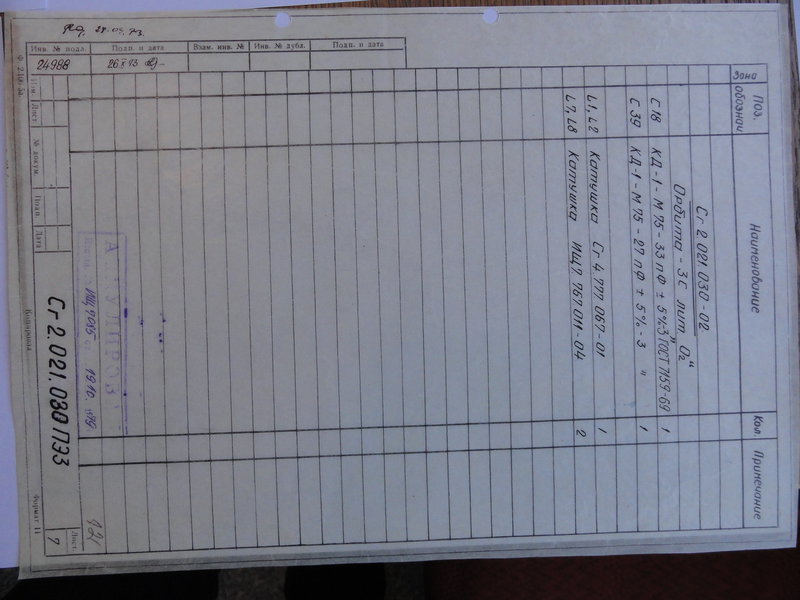 Зона
Поз. обознач
Наименование
Кол.
Примечание
Сг 2.021.030-02
"Орбита-3С лит. О₂"
С18 КД-1-М75-33пФ ± 5%-3 ГОСТ 7159-69 1
С39 КД-1-М75-27пФ ± 5%-3 " 1
L1, L2 Катушка Сг 4.777.067-01 1
L7, L8 Катушка ИЩ7.767.011-04 2
Инв. № подл.
Подп. и дата
Взам. инв. №
Инв. № дубл.
Подп. и дата
24998
Лист
№ докум.
Подп.
Дата
Сг 2.021.030 ПЭ3
Копировал
Формат 11
Лист